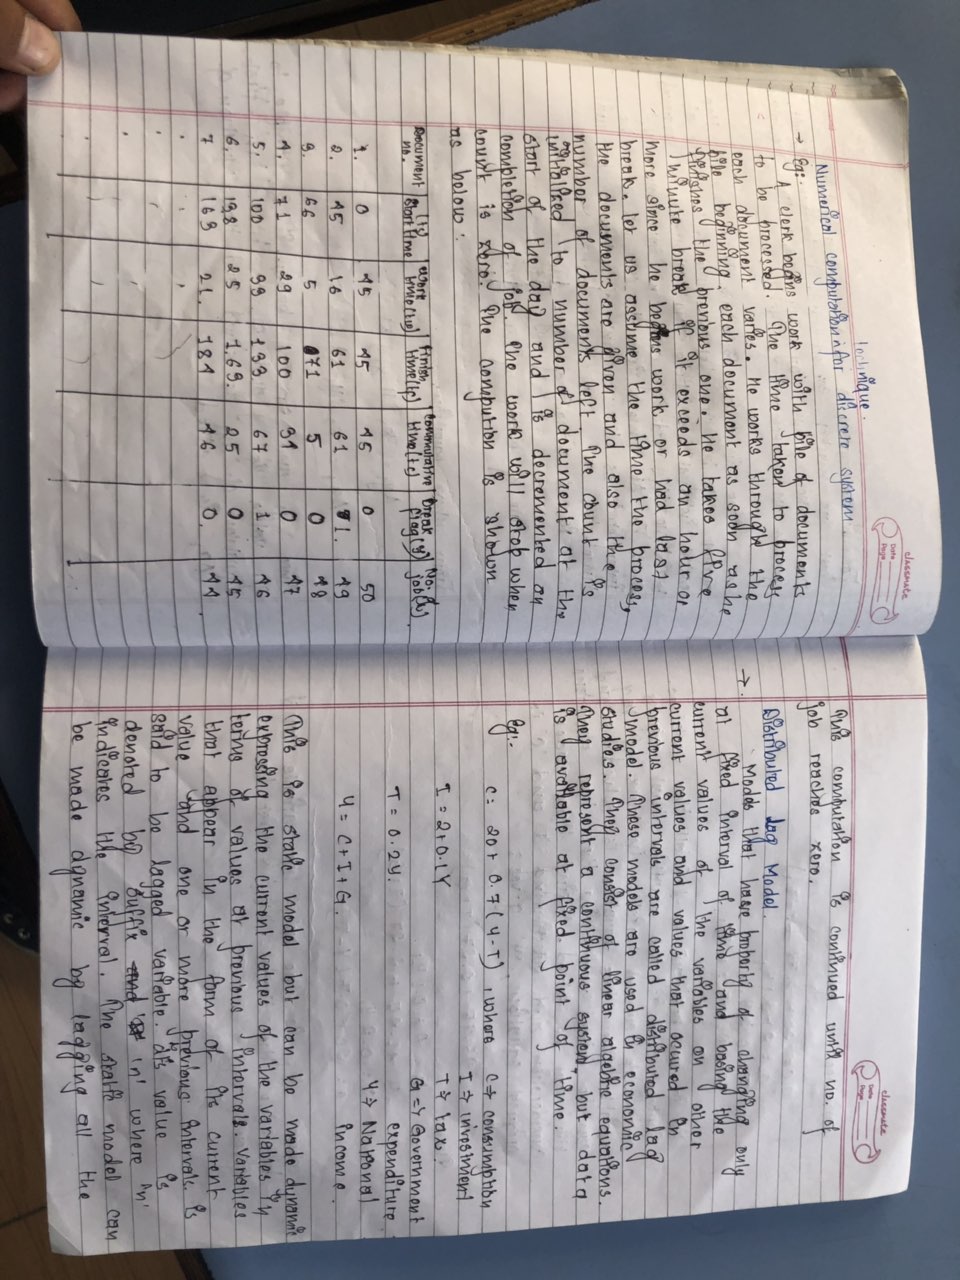 classmate
Date
Page
Numerical computation for discrete system
technique.
→ Eg:. A clerk begins work with pile of documents
to be processed. The time taken to process
each document varies. He works through the
pile beginning each document as soon as he
finishes the previous one. He takes five
minute break if it exceeds an hour or
more since he begins work or had last
break. let us assume the time the process,
the documents are given and also the
number of documents left. The count is
initialised to number of document at the
start of the day and is decremented on
completion of job. The work will stop when
count is zero. The compution is shown
as below:
Document no. | (ts) start time | work time (tw) | Finish time (tf) | commutative time (tc) | Break flag (g) | No. of job (N).
1. | 0 | 45 | 45 | 45 | 0 | 50
2. | 45 | 16 | 61 | 61 | 1. | 49
3. | 66 | 5 | 71 | 5 | 0 | 48
4. | 71 | 29 | 100 | 34 | 0 | 47
5. | 100 | 33 | 133 | 67 | 1. | 46
6. | 138 | 25 | 163. | 25 | 0 | 45
7 | 163 | 21. | 184 | 46 | 0. | 44
classmate
Date
Page
This computation is continued until no. of
job reaches zero.
→. Distributed lag Model.
Models that have property of changing only
at fixed interval of time and basing the
current values of the variables on other
current values and values that occured in
previous intervals are called distributed lag
model. These models are used in economic
studies. They consist of linear algebric equations.
They represent a continuous system, but data
is available at fixed point of time.
eg:.
C = 20 + 0.7(Y-T), where C → consumption
I → investment
I = 2+0.1Y T → tax.
G → Government
T = 0.2Y. expenditure.
Y → National
Y = C+I+G. income.
This is static model but can be made dynamic
expressing the current values of the variables in
terms of values at previous intervals. Variables
that appear in the form of its current
value and one or more previous intervals is
said to be lagged variable. its value is
denoted by suffix '-n' where 'n'
indicates the interval. The static model can
be made dynamic by lagging all the